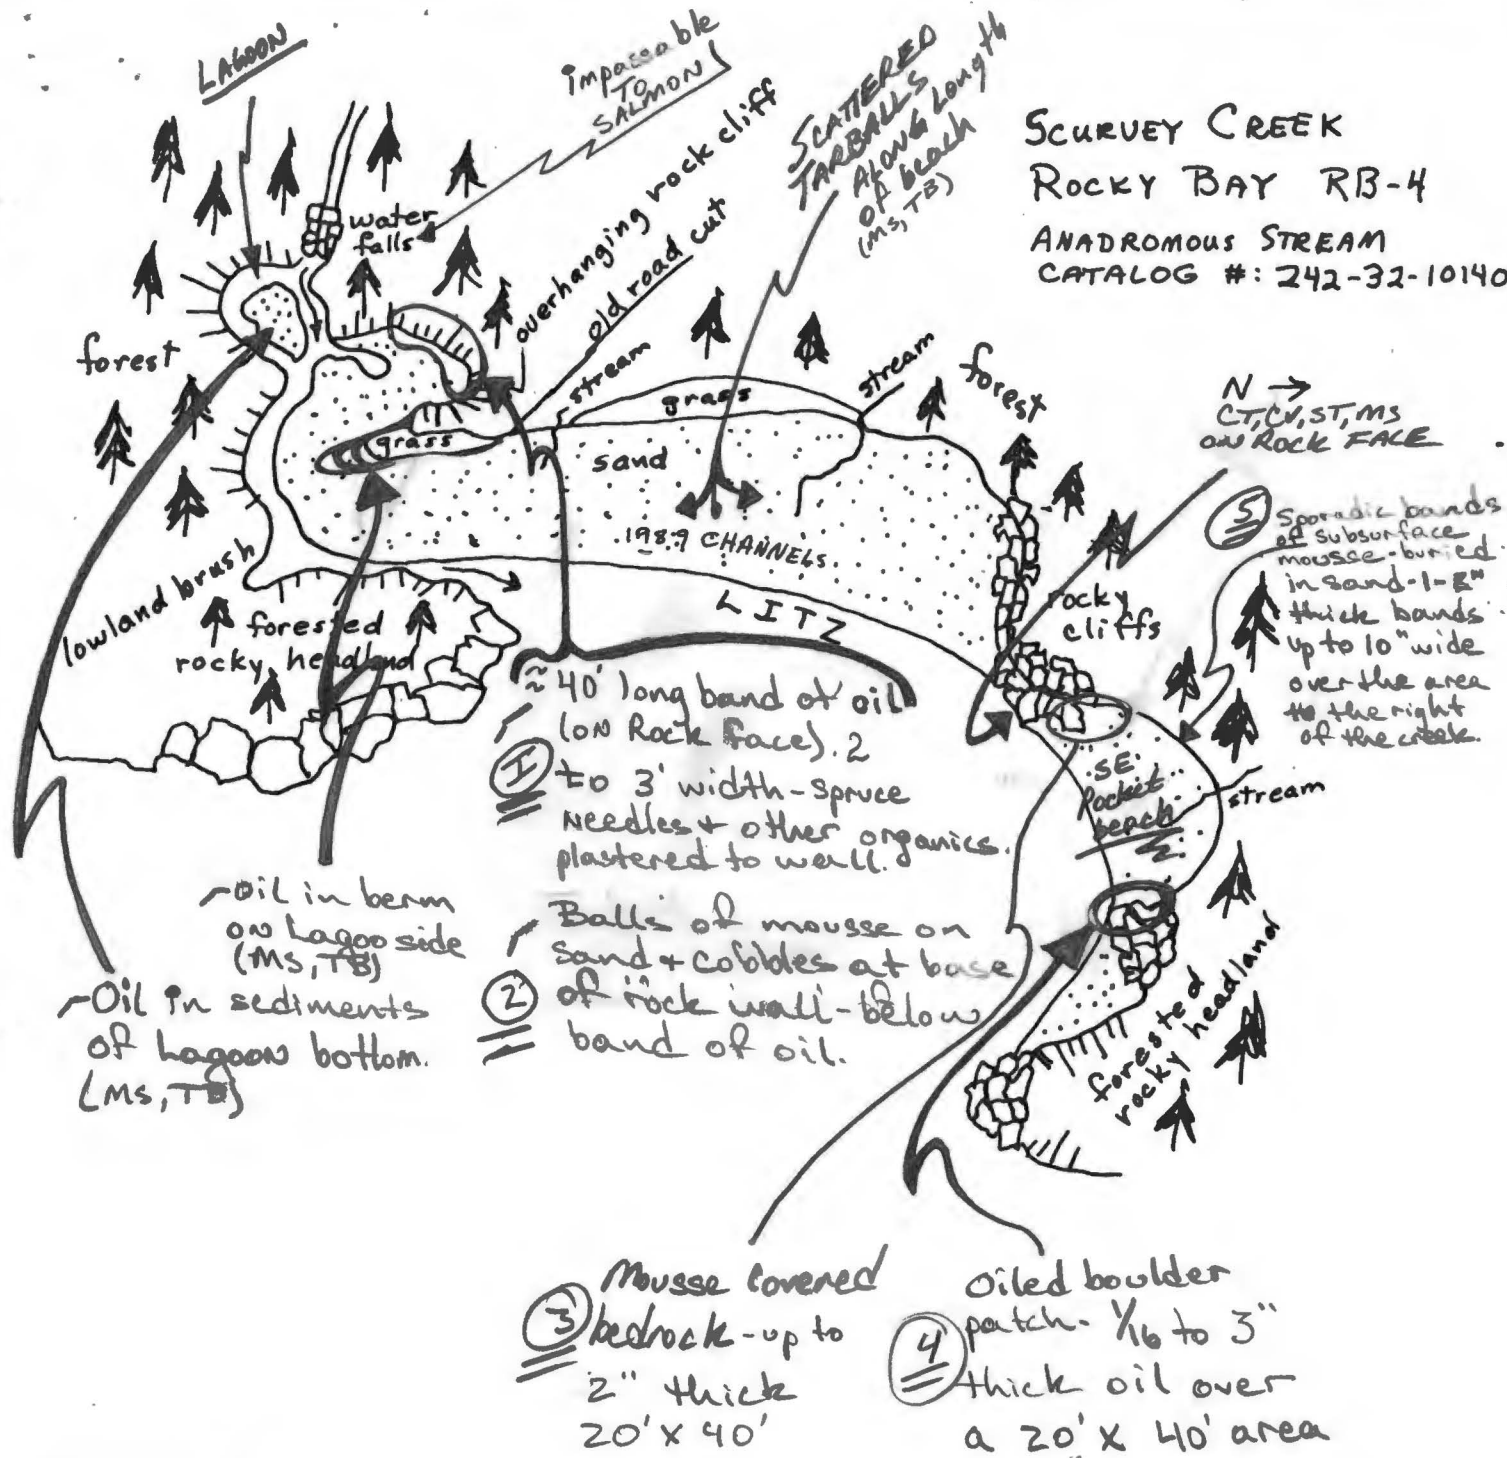 LAGOON
impassable
TO
SALMON
SCATTERED
TARBALLS
ALONG Length
OF beach
(MS, TB)
SCURVEY CREEK
ROCKY BAY RB-4
ANADROMOUS STREAM
CATALOG #: 242-32-10140
water
falls
overhanging rock cliff
old road cut
stream
forest
grass
stream
forest
N →
CT, CV, ST, MS
ON ROCK FACE
grass
sand
1989 CHANNELS
LITZ
lowland brush
forested
rocky headland
rocky
cliffs
5
Sporadic bands
of subsurface
mousse-buried
in sand-1-8"
thick bands
up to 10" wide
over the area
to the right
of the creek.
≈ 40' long band of oil
(ON Rock face). 2
1
to 3' width-spruce
needles + other organics.
plastered to wall.
SE
Pocket
beach
stream
~Oil in berm
on Lagoo side
(MS, TB)
~Oil in sediments
of Lagoon bottom.
(MS, TB)
2
Balls of mousse on
sand + cobbles at base
of rock wall-below
band of oil.
forested
rocky headland
3
Mousse covered
bedrock-up to
2" thick
20' X 40'
4
Oiled boulder
patch- 1/16 to 3"
thick oil over
a 20' X 40' area